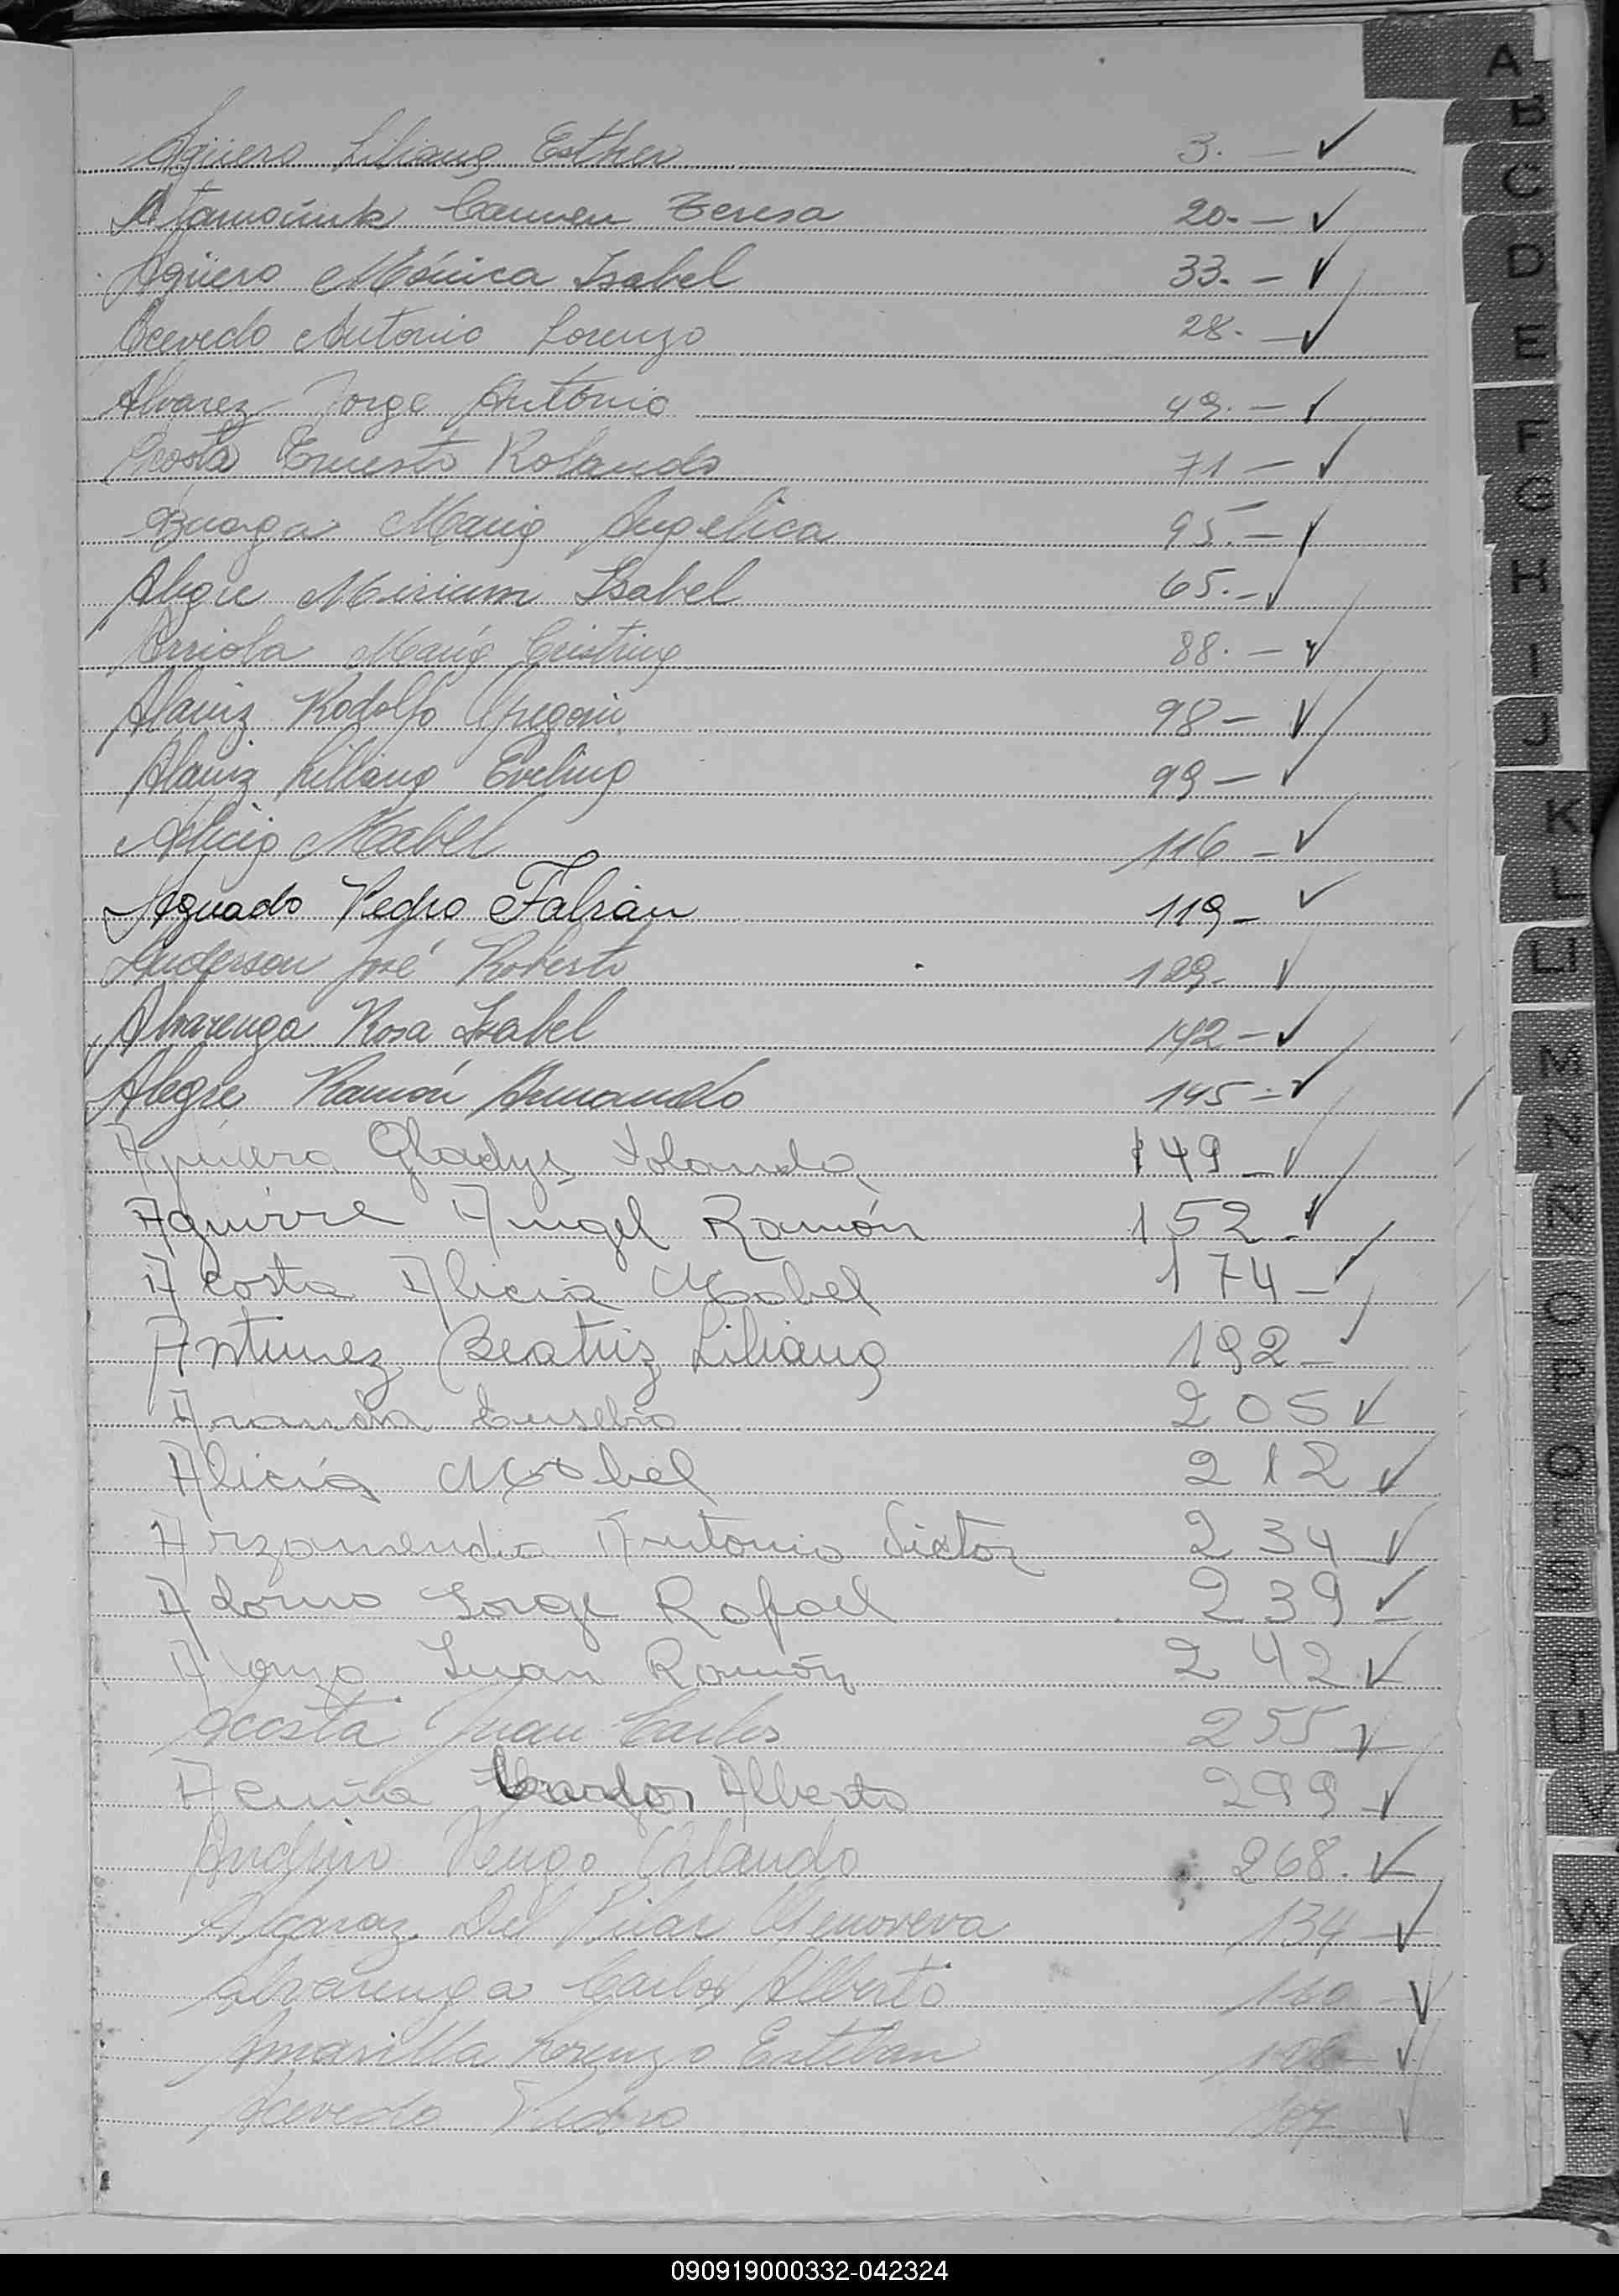 Agüero Liliana Esther 3. — ✓
Carmen Teresa 20. — ✓
Agüero Mónica Isabel 33. — ✓
Acevedo Antonio Lorenzo 28. — ✓
Alvarez Jorge Antonio 49. — ✓
Acosta Ernesto Rolando 71 — ✓
María Angelica 95. — ✓
Alegre Miriam Isabel 65. — ✓
Arriola María Cristina 88. — ✓
Alaniz Rodolfo Gregorio 98 — ✓
Alaniz Liliana Evelina 99 — ✓
Alicia Mabel 116 — ✓
Aguado Pedro Fabián 119 — ✓
Anderson José Roberto 129. ✓
Alvarenga Rosa Isabel 142 — ✓
Alegre Ramón Armando 145 — ✓
Agüero Gladys Yolanda 149 — ✓
Aguirre Angel Ramón 152 — ✓
Acosta Alicia Mabel 174 — ✓
Antunez Beatriz Liliana 192 — ✓
Aranda Eusebio 205 ✓
Alicia Mabel 212 ✓
Arzamendia Antonio Victor 234 ✓
Adorno Jorge Rafael 239 ✓
Juan Ramón 242 ✓
Acosta Juan Carlos 255 ✓
Acuña Carlos Alberto 299 ✓
Andino Hugo Orlando 268. ✓
Alcaraz Del Pilar Genoveva 134 — ✓
Alvarenga Carlos Alberto 160 — ✓
Amarilla Lorenzo Esteban ✓
Acevedo Pedro 107 ✓
A
B
C
D
E
F
G
H
I
J
K
L
LL
M
N
Ñ
O
P
Q
R
S
T
U
V
W
X
Y
Z
090919000332-042324